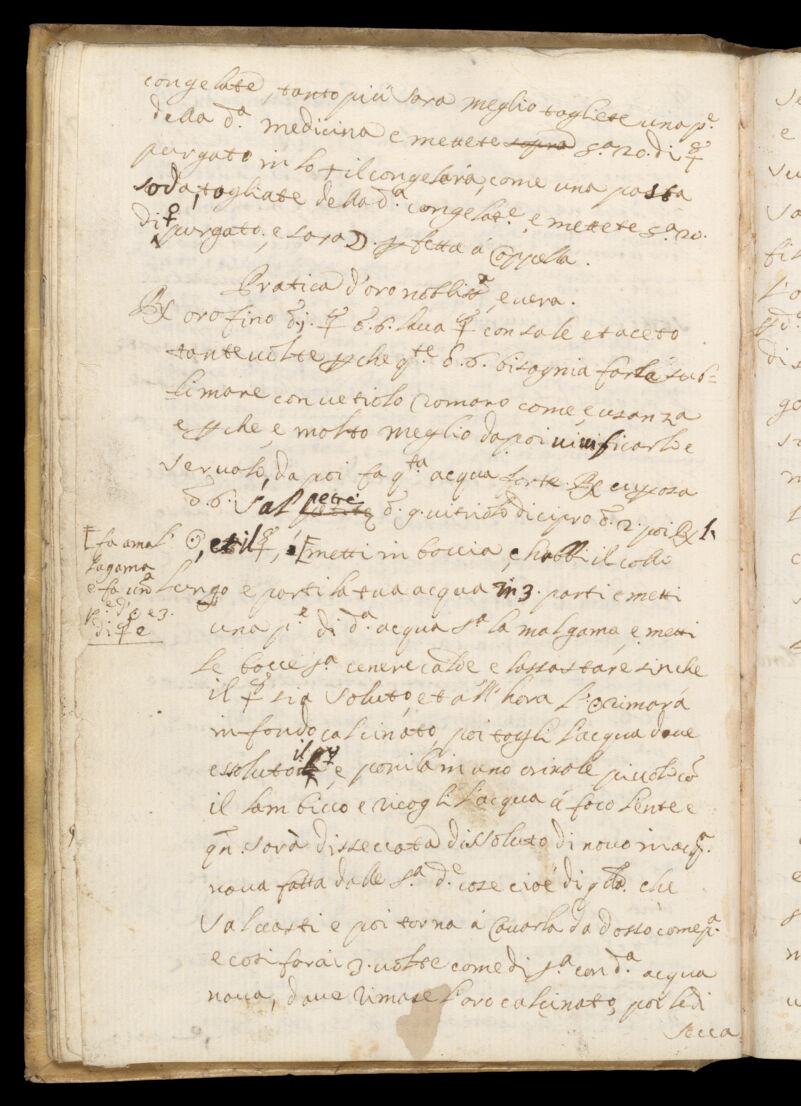 congelate, tanto piú sara meglio togliete una p.ᵉ
della d.ᵃ medicina e mettete sopra s.ᵃ 20. di ☿
purgato in lo + il congelara, come una pasta
soda, togliate della d.ᵃ congelat.ᵉ e mettete s.ᵃ 20.
di ☿ purgato, e sara ☽. pfetta á Coppella.
Pratica d'oro nobliss.ᵃ, e vera.
℞ oro fino ℥j. ☿ ℥.6. laua ☿ con sale et aceto
tante uolte pche q.ᵗᵉ ℥.6. bisognia farle sub=
limare con uetriolo romano come, e usanza
e pche, e molto meglio da poi uiuificarlo e
serualo, da poi fa q.ᵗᵃ acqua forte. ℞
℥.6. Sal petre ℥.9. uitriolo di cipro ℥.2. poi ℞ l.
☉, et il ☿, metti in boccia, c habbi il collo
lungo e parti la tua acqua in 3. parti e metti
una p.ᵉ di d.ᵃ acqua s.ᵃ la malgama, e metti
le bocce s.ᵃ cenere calde e lassa stare sinche
il ☿ sia soluto, et all'hora l'☉ rimará
in fondo calcinato, poi togli l'acqua doue
e soluto il ☿, e ponila in uno orinale piccolo cō
il lambicco e ricogli l'acqua á foco lente e
qn̄. sará disseccata dissoluto di nouo in acq.ᵃ
noua fatta dalle s.ᵃ d.ᵉ cose cioé di che
e poi torna á Cauarla da dosso come p.ᵃ
e cosi farai 3. uolte come di s.ᵃ con d.ᵃ acqua
noua, doue rimase l'oro calcinato, poi le di
secca
[fa amal
gama
e fa una
p.ᵉ d'☉ e 3.
di ☿ e